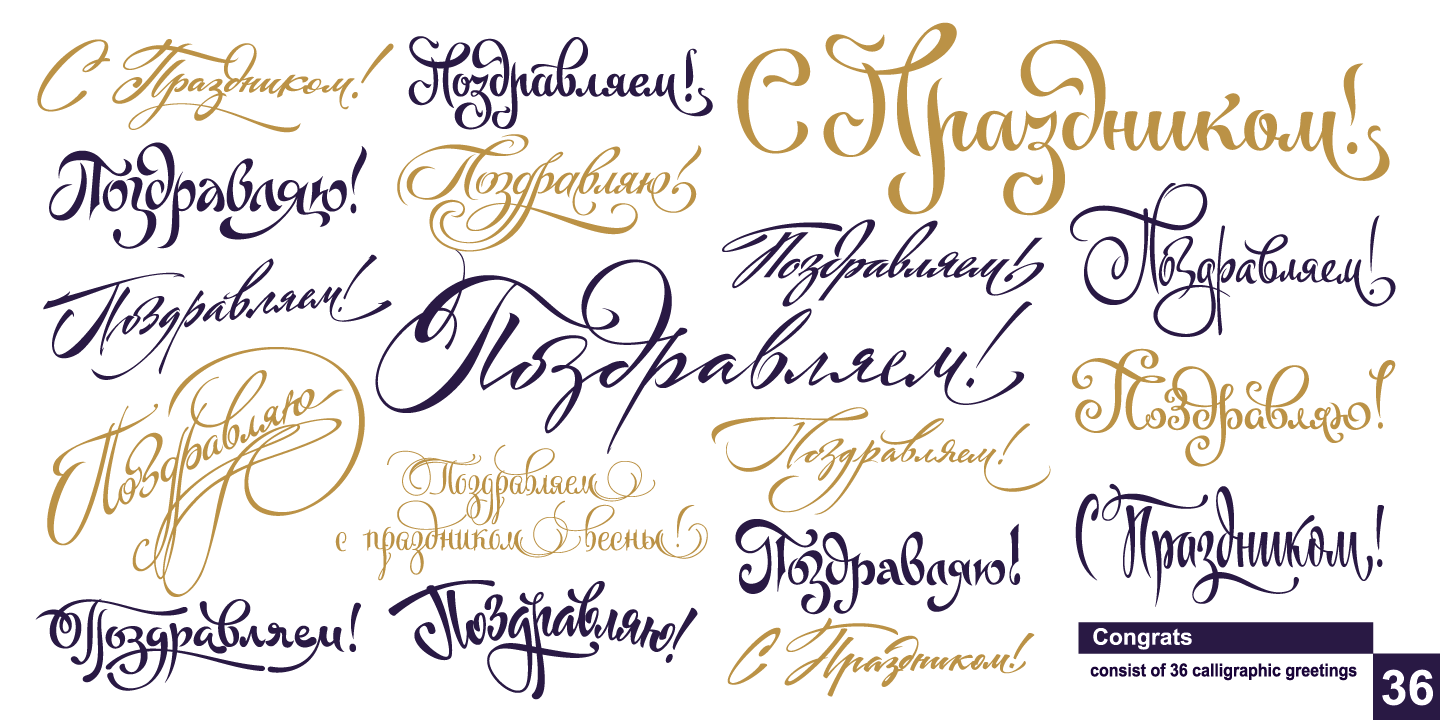 С Праздником!
Поздравляем!
С Праздником!
Поздравляю!
Поздравляю!
Поздравляем!
Поздравляем!
Поздравляем!
Поздравляем!
Поздравляю
Поздравляю!
Поздравляем!
Поздравляем
с праздником весны!
С Праздником!
Поздравляю!
Поздравляем!
Поздравляю!
С Праздником!
Congrats
consist of 36 calligraphic greetings
36